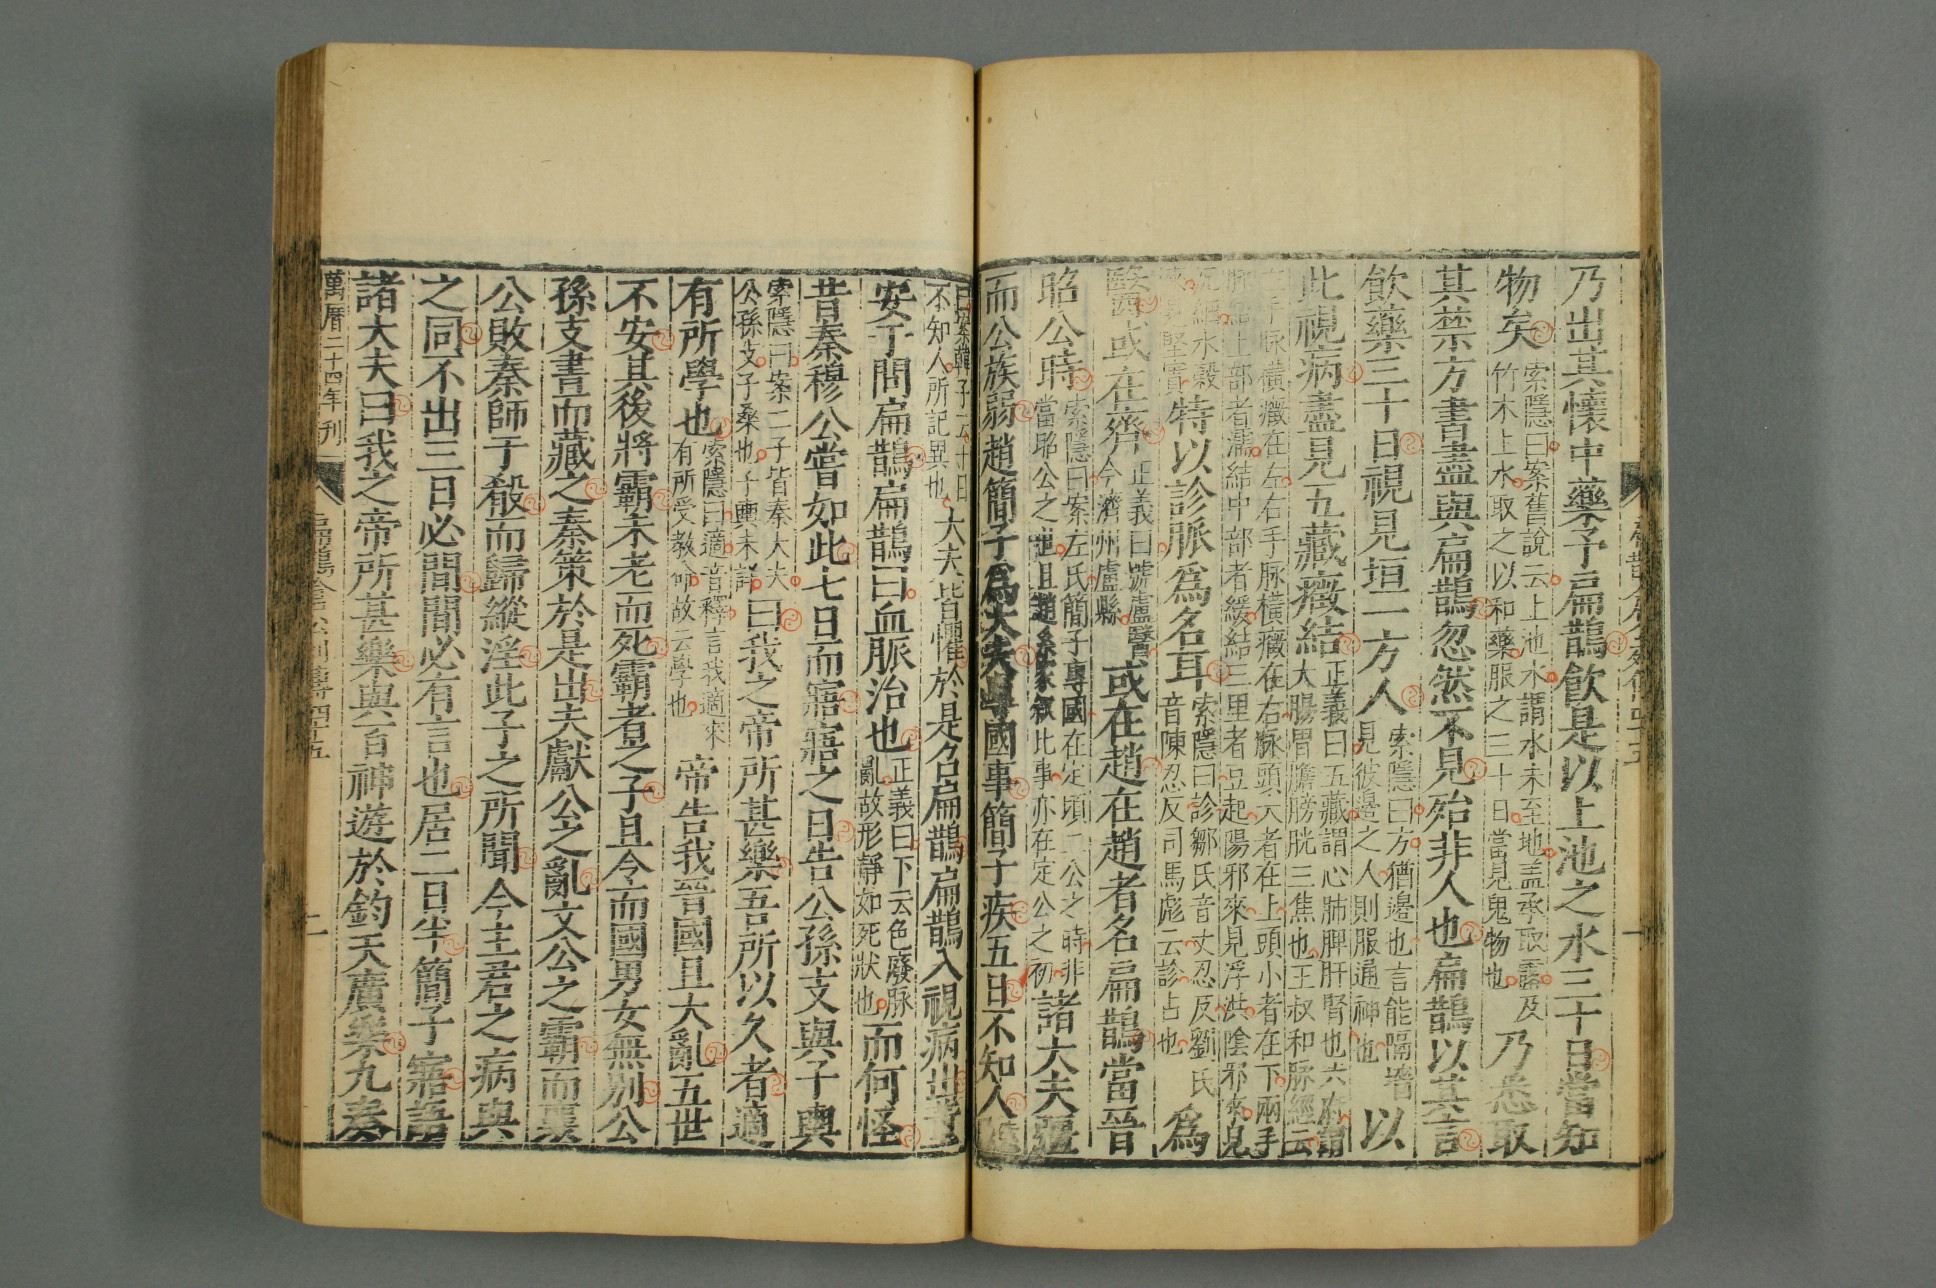 乃出其懷中藥予扁鵲飲是以上池之水三十日當知
物矣索隱曰案舊說云上池水謂水未至地蓋承取露及竹木上水取之以和藥服之三十日當見鬼物也乃悉取
其禁方書盡與扁鵲忽然不見殆非人也扁鵲以其言
飲藥三十日視見垣一方人索隱曰方猶邊也言能隔墻見彼邊之人則服通神也以
此視病盡見五藏癥結正義曰五藏謂心肺脾肝腎也六府謂大腸胃膽膀胱三焦也王叔和脉經云
左手脉橫癥在左右手脉橫癥在右脉頭大者在上頭小者在下兩手
脉結上部者濡結中部者緩結三里者豆起陽邪來見浮洪陰邪來見
沉細水穀來見堅實特以診脈為名耳索隱曰診鄒氏音丈忍反劉氏音陳忍反司馬彪云診占也為
醫或在齊正義曰號盧醫今濟州盧縣或在趙在趙者名扁鵲當晉
昭公時索隱曰案左氏簡子專國在定頃二公之時非當昭公之世且趙系家敘此事亦在定公之初諸大夫彊
而公族弱趙簡子為大夫專國事簡子疾五日不知人
索隱曰案韓子云十日不知人所記異也大夫皆懼於是召扁鵲扁鵲入視病出董
安于問扁鵲扁鵲曰血脈治也正義曰下云色廢脉亂故形靜如死狀也而何怪
昔秦穆公嘗如此七日而寤寤之日告公孫支與子輿
索隱曰案二子皆秦大夫公孫支子桑也子輿未詳曰我之帝所甚樂吾所以久者適
有所學也索隱曰適音釋言我適來有所受教命故云學也帝告我晉國且大亂五世
不安其後將霸未老而死霸者之子且令而國男女無別公
孫支書而藏之秦策於是出夫獻公之亂文公之霸而襄
公敗秦師于殽而歸縱淫此子之所聞今主君之病與
之同不出三日必間間必有言也居二日半簡子寤語
諸大夫曰我之帝所甚樂與百神遊於鈞天廣樂九奏
萬曆二十四年刊
扁鵲倉公列傳四十五
二